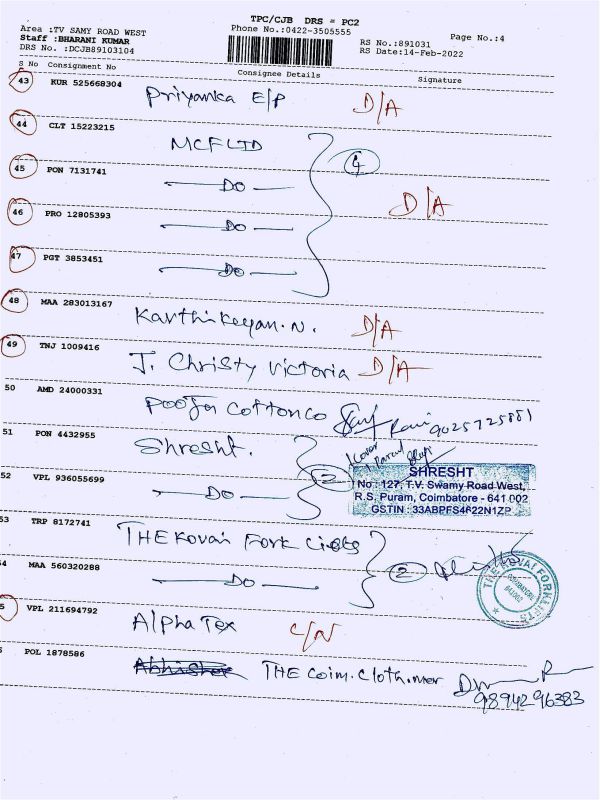 TPC/CJB DRS = PC2
Area :TV SAMY ROAD WEST
Phone No.:0422-3505555
Page No.:4
Staff :BHARANI KUMAR
RS No.:891031
DRS No. :DCJB89103104
RS Date:14-Feb-2022
S No Consignment No
Consignee Details
Signature
43 KUR 525668304 Priyanka E/P D/A
44 CLT 15223215 MCF LTD
4
45 PON 7131741 DO
D/A
46 PRO 12805393 DO
47 PGT 3853451 DO
48 MAA 283013167 Karthikeyan.N. D/A
49 TNJ 1009416 J. Christy Victoria D/A
50 AMD 24000331 Pooja Cotton Co 9025725881
51 PON 4432955 Shresht.
1 Cover
1 Parcel
52 VPL 936055699 DO 2
SHRESHT
No : 127, T.V. Swamy Road West,
R.S. Puram, Coimbatore - 641 002
GSTIN : 33ABPFS4622N1ZP
53 TRP 8172741 THE Kovai Fork
2
54 MAA 560320288 DO
THE KOVAI FORKLIFTS
COIMBATORE
641002
5 VPL 211694792 Alpha Tex C/N
POL 1878586 THE Coim. Cloth. Mer
9894296383